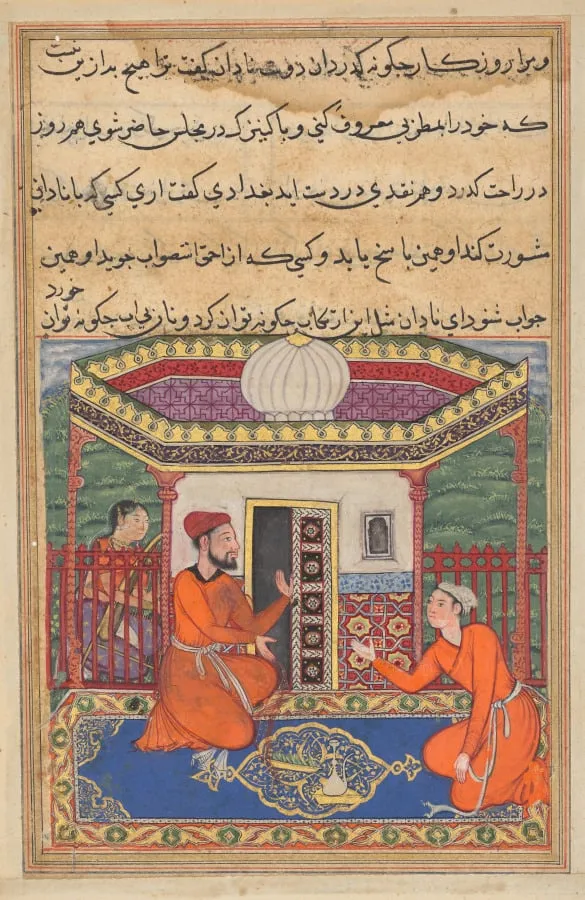 وبرا روزکار جکونه کذرد ان دوست نادان کفت ترا هیج بدازین نیست
که خود را بمطربی معروف کنی و با کنیزک در مجلس حاضر شوی هم روز
در راحت کذرد و هم نقدی در دست اید بغدادی کفت اری کسی که با نادانی
مشورت کند او همین باسخ یابد و کسی که از احمق صواب جوید او همین
جواب شنود ای نادان مثل این ارتکاب جکونه توان کرد و نان بی اب جکونه توان خورد